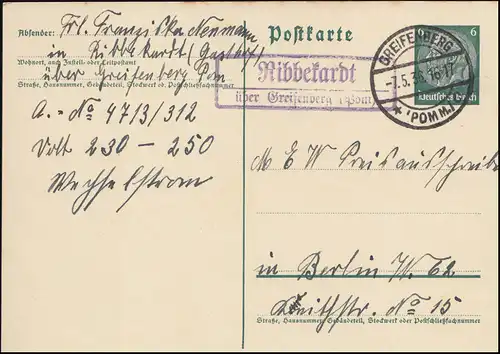 Absender: Frl. Franziska Neumann
in Ribbekardt (Gasthof)
Wohnort, auch Zustell- oder Leitpostamt
über Greifenberg Pom
Straße, Hausnummer, Gebäudeteil, Stockwerk od. Postschließfachnummer
A.- No 4713/312
Volt 230 - 250
Wechselstrom
Postkarte
6
Deutsches Reich
GREIFENBERG
(POMM.)
Ribbekardt
über Greifenberg (Pom
M E W Preisausschreiben
in Berlin W. 62
Keithstr. No 15
Straße, Hausnummer, Gebäudeteil, Stockwerk oder Postschließfachnummer